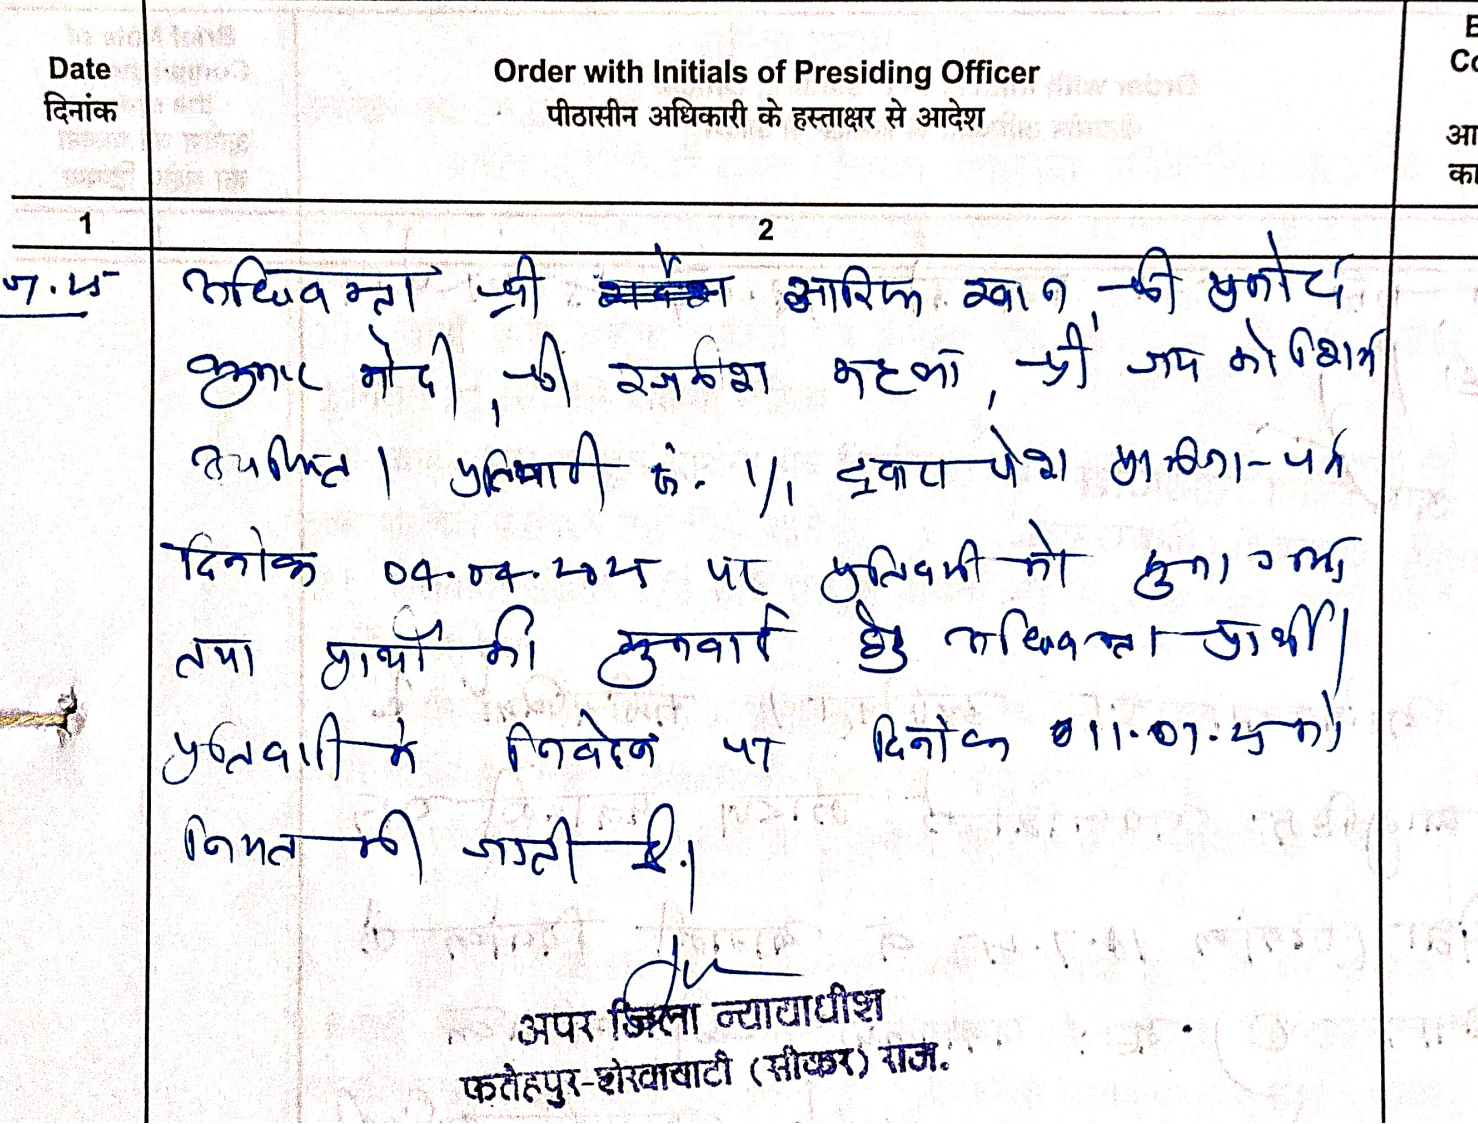 Date
दिनांक
Order with Initials of Presiding Officer
पीठासीन अधिकारी के हस्ताक्षर से आदेश
1
2
अधिवक्ता श्री आरिफ खान, श्री प्रमोद
कुमार मोदी, श्री रजनीश कहका, श्री जय कौशिक
उपस्थित। प्रतिवादी सं. 1/1 द्वारा पेश प्रार्थना-पत्र
दिनांक 04.04.2025 पर प्रतिवादी को सुना गया
तथा प्रार्थी की सुनवाई हेतु अधिवक्ता प्रार्थी/
प्रतिवादी के निवेदन पर दिनांक 11.07.25 को
नियत की जाती है।
अपर जिला न्यायाधीश
फतेहपुर-शेखावाटी (सीकर) राज.